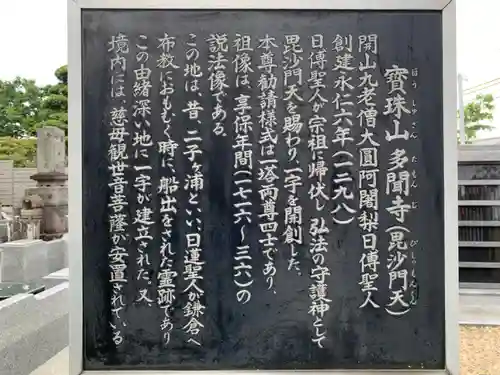 寶珠山 多聞寺(毘沙門天)
ほうしゅざん たもんじ びしゃもんてん
開山九老僧大圓阿闍梨日傳聖人
創建永仁六年(一二九八)
日傳聖人が宗祖に帰伏し弘法の守護神として
毘沙門天を賜わり、一宇を開創した。
本尊勧請様式は一塔両尊四士であり、
祖像は、享保年間(一七一六〜三六)の
説法像である。
この地は、昔、二子の浦といい、日蓮聖人が鎌倉へ
布教におもむく時に船出をされた霊跡であり
この由緒深い地に一宇が建立された。又、
境内には、慈母観世音菩薩が安置されている